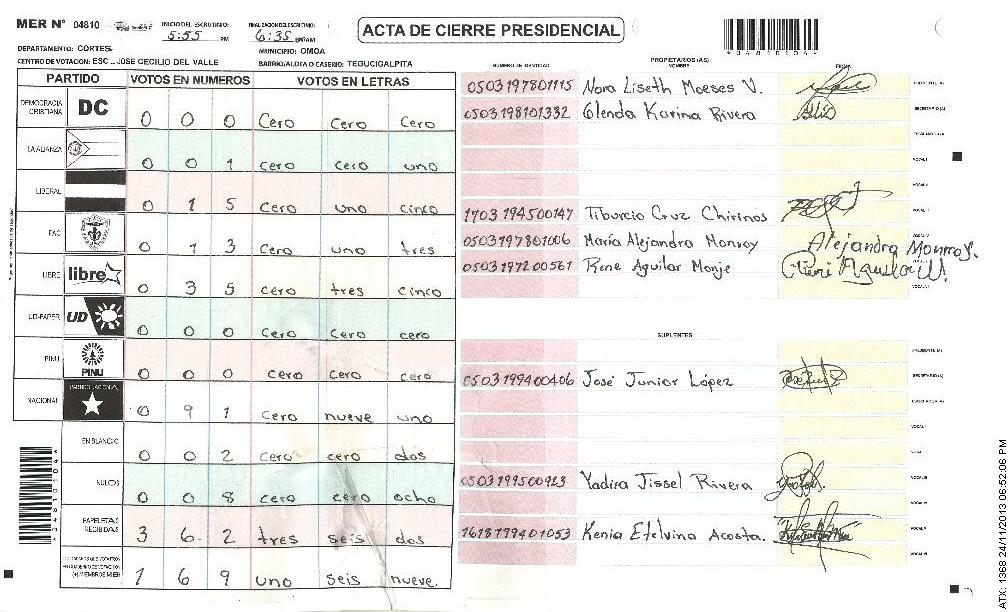 MER N° 04810
INICIO DEL ESCRUTINIO: 5:55 PM
FINALIZACION DEL ESCRUTINIO: 6:35
ACTA DE CIERRE PRESIDENCIAL
DEPARTAMENTO: CORTES
MUNICIPIO: OMOA
CENTRO DE VOTACION: ESC. JOSE CECILIO DEL VALLE
BARRIO/ALDEA O CASERIO: TEGUCIGALPITA
PARTIDO VOTOS EN NUMEROS VOTOS EN LETRAS
DEMOCRACIA CRISTIANA DC 0 0 0 Cero Cero Cero
LA ALIANZA 0 0 1 cero cero uno
LIBERAL 0 1 5 Cero uno cinco
PAC 0 1 3 Cero uno tres
LIBRE libre 0 3 5 cero tres cinco
UD-FAPER UD 0 0 0 Cero Cero cero
PINU PINU 0 0 0 cero Cero cero
NACIONAL PARTIDO NACIONAL 0 9 1 cero nueve uno
EN BLANCO 0 0 2 cero cero dos
NULOS 0 0 8 cero cero ocho
PAPELETAS RECIBIDAS 3 6 2 tres seis dos
(+) MIEMBROS MER 1 6 9 uno seis nueve.
PROPIETARIOS (AS)
NUMERO DE IDENTIDAD NOMBRE FIRMA
0503197801115 Nora Liseth Moeses V. PRESIDENTE (A)
0503198101332 Glenda Karina Rivera SECRETARIO (A)
ESCRUTADOR (A)
VOCAL I
VOCAL II
1703194500147 Tiburcio Cruz Chirinos
0503197801006 María Alejandra Monroy Alejandra Monroy.
0503197200561 Rene Aguilar Monje
SUPLENTES
PRESIDENTE (A)
0503199400406 José Junior López SECRETARIO (A)
ESCRUTADOR (A)
VOCAL I
0503199500923 Yadira Jissel Rivera
1618199401053 Kenia Etelvina Acosta.
*04810104*
*04810104*
ATX: 1368 24/11/2013 06:52:06 PM